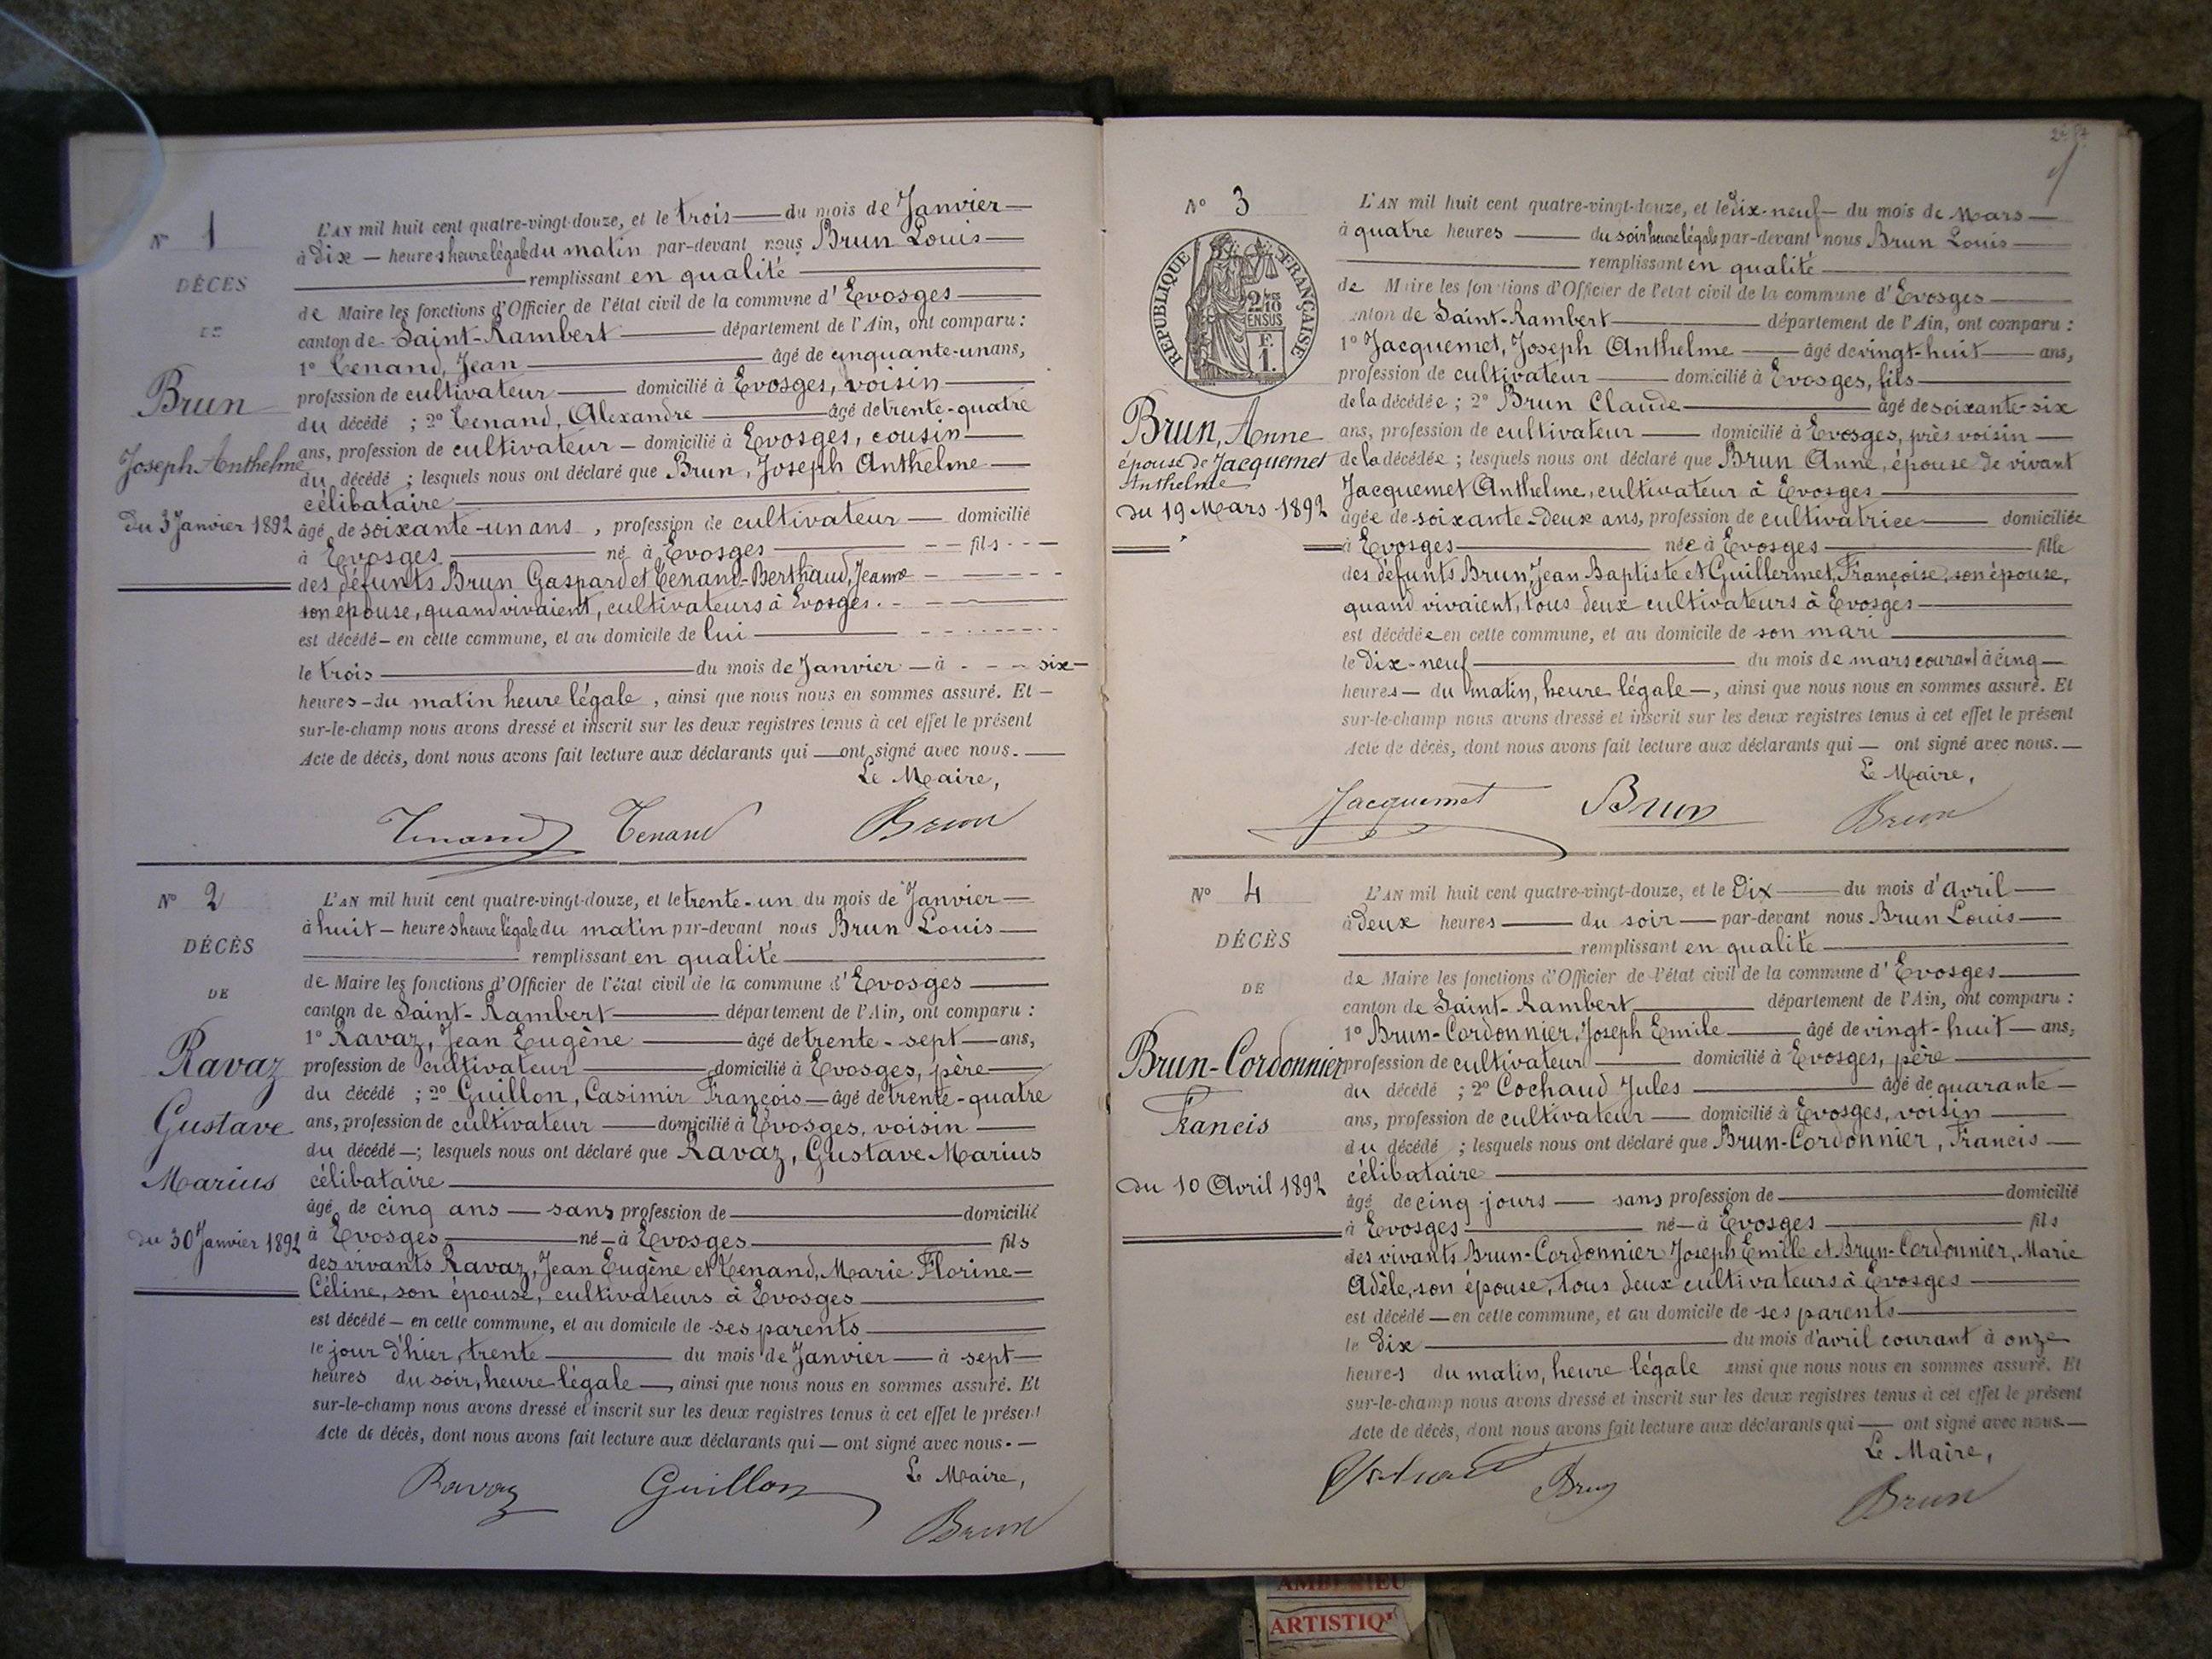 N° 1
DÉCÈS
DE
Brun
Joseph Anthelme
du 3 Janvier 1892
L'AN mil huit cent quatre-vingt-douze, et le trois du mois de Janvier
à dix heures heure légale du matin par-devant nous Brun Louis
remplissant en qualité
de Maire les fonctions d'Officier de l'état civil de la commune d'Evosges
canton de Saint-Rambert département de l'Ain, ont comparu :
1° Tenand, Jean âgé de cinquante-un ans,
profession de cultivateur domicilié à Evosges, voisin
du décédé ; 2° Tenand, Alexandre âgé de trente-quatre
ans, profession de cultivateur domicilié à Evosges, cousin
du décédé ; lesquels nous ont déclaré que Brun, Joseph Anthelme
célibataire
âgé de soixante-un ans, profession de cultivateur domicilié
à Evosges né à Evosges fils
des défunts Brun Gaspard et Tenand-Berthaud, Jeanne
son épouse, quand vivaient, cultivateurs à Evosges.
est décédé en cette commune, et au domicile de lui
le trois du mois de Janvier à six
heures du matin heure légale, ainsi que nous nous en sommes assuré. Et
sur-le-champ nous avons dressé et inscrit sur les deux registres tenus à cet effet le présent
Acte de décès, dont nous avons fait lecture aux déclarants qui ont signé avec nous.
Le Maire,
Tenand Tenand Brun
N° 2
DÉCÈS
DE
Ravaz
Gustave
Marius
du 30 Janvier 1892
L'AN mil huit cent quatre-vingt-douze, et le trente-un du mois de Janvier
à huit heures heure légale du matin par-devant nous Brun Louis
remplissant en qualité
de Maire les fonctions d'Officier de l'état civil de la commune d'Evosges
canton de Saint-Rambert département de l'Ain, ont comparu :
1° Ravaz, Jean Eugène âgé de trente-sept ans,
profession de cultivateur domicilié à Evosges, père
du décédé ; 2° Guillon, Casimir François âgé de trente-quatre
ans, profession de cultivateur domicilié à Evosges, voisin
du décédé ; lesquels nous ont déclaré que Ravaz, Gustave Marius
célibataire
âgé de cinq ans sans profession de domicilié
à Evosges né à Evosges fils
des vivants Ravaz, Jean Eugène et Tenand, Marie Florine
Céline, son épouse, cultivateurs à Evosges
est décédé en cette commune, et au domicile de ses parents
le jour d'hier, trente du mois de Janvier à sept
heures du soir, heure légale, ainsi que nous nous en sommes assuré. Et
sur-le-champ nous avons dressé et inscrit sur les deux registres tenus à cet effet le présent
Acte de décès, dont nous avons fait lecture aux déclarants qui ont signé avec nous.
Le Maire,
Ravaz Guillon Brun
N° 3
RÉPUBLIQUE FRANÇAISE
2/10
EN SUS
F.
1.
Brun, Anne
épouse de Jacquemet
Anthelme
du 19 Mars 1892
L'AN mil huit cent quatre-vingt-douze, et le dix-neuf du mois de Mars
à quatre heures du soir heure légale par-devant nous Brun Louis
remplissant en qualité
de Maire les fonctions d'Officier de l'état civil de la commune d'Evosges
canton de Saint-Rambert département de l'Ain, ont comparu :
1° Jacquemet, Joseph Anthelme âgé de vingt-huit ans,
profession de cultivateur domicilié à Evosges, fils
de la décédée ; 2° Brun Claude âgé de soixante-six
ans, profession de cultivateur domicilié à Evosges, près voisin
de la décédée ; lesquels nous ont déclaré que Brun Anne, épouse de vivant
Jacquemet Anthelme, cultivateur à Evosges
âgée de soixante-deux ans, profession de cultivatrice domiciliée
à Evosges née à Evosges fille
des défunts Brun, Jean Baptiste et Guillermet, Françoise, son épouse,
quand vivaient, tous deux cultivateurs à Evosges
est décédée en cette commune, et au domicile de son mari
le dix-neuf du mois de mars courant à cinq
heures du matin, heure légale, ainsi que nous nous en sommes assuré. Et
sur-le-champ nous avons dressé et inscrit sur les deux registres tenus à cet effet le présent
Acte de décès, dont nous avons fait lecture aux déclarants qui ont signé avec nous.
Le Maire,
Jacquemet Brun Brun
N° 4
DÉCÈS
DE
Brun-Cordonnier
Francis
du 10 Avril 1892
L'AN mil huit cent quatre-vingt-douze, et le dix du mois d'avril
à deux heures du soir par-devant nous Brun Louis
remplissant en qualité
de Maire les fonctions d'Officier de l'état civil de la commune d'Evosges
canton de Saint-Rambert département de l'Ain, ont comparu :
1° Brun-Cordonnier, Joseph Emile âgé de vingt-huit ans,
profession de cultivateur domicilié à Evosges, père
du décédé ; 2° Cochaud Jules âgé de quarante
ans, profession de cultivateur domicilié à Evosges, voisin
du décédé ; lesquels nous ont déclaré que Brun-Cordonnier, Francis
célibataire
âgé de cinq jours sans profession de domicilié
à Evosges né à Evosges fils
des vivants Brun-Cordonnier Joseph Emile et Brun-Cordonnier, Marie
Adèle, son épouse, tous deux cultivateurs à Evosges
est décédé en cette commune, et au domicile de ses parents
le dix du mois d'avril courant à onze
heures du matin, heure légale ainsi que nous nous en sommes assuré. Et
sur-le-champ nous avons dressé et inscrit sur les deux registres tenus à cet effet le présent
Acte de décès, dont nous avons fait lecture aux déclarants qui ont signé avec nous.
Le Maire,
Brun Brun
ARTISTIQ